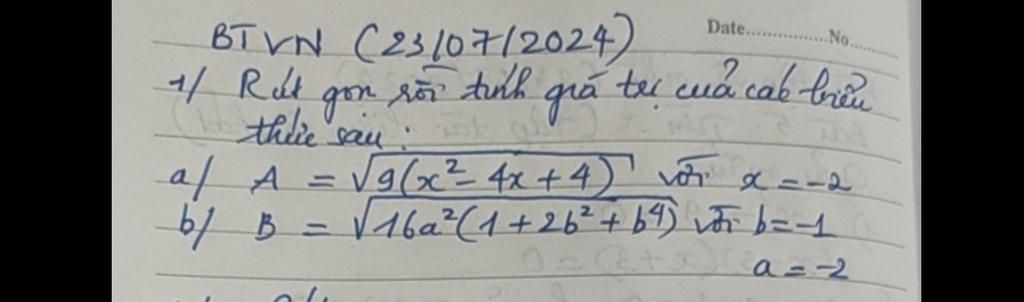 Date...............No..........
BTVN (23/07/2024)
1/ Rút gọn rồi tính giá trị của các biểu
thức sau :
a/ A = √9(x² - 4x + 4) với x = -2
b/ B = √16a²(1 + 2b² + b⁴) với b = -1
a = -2